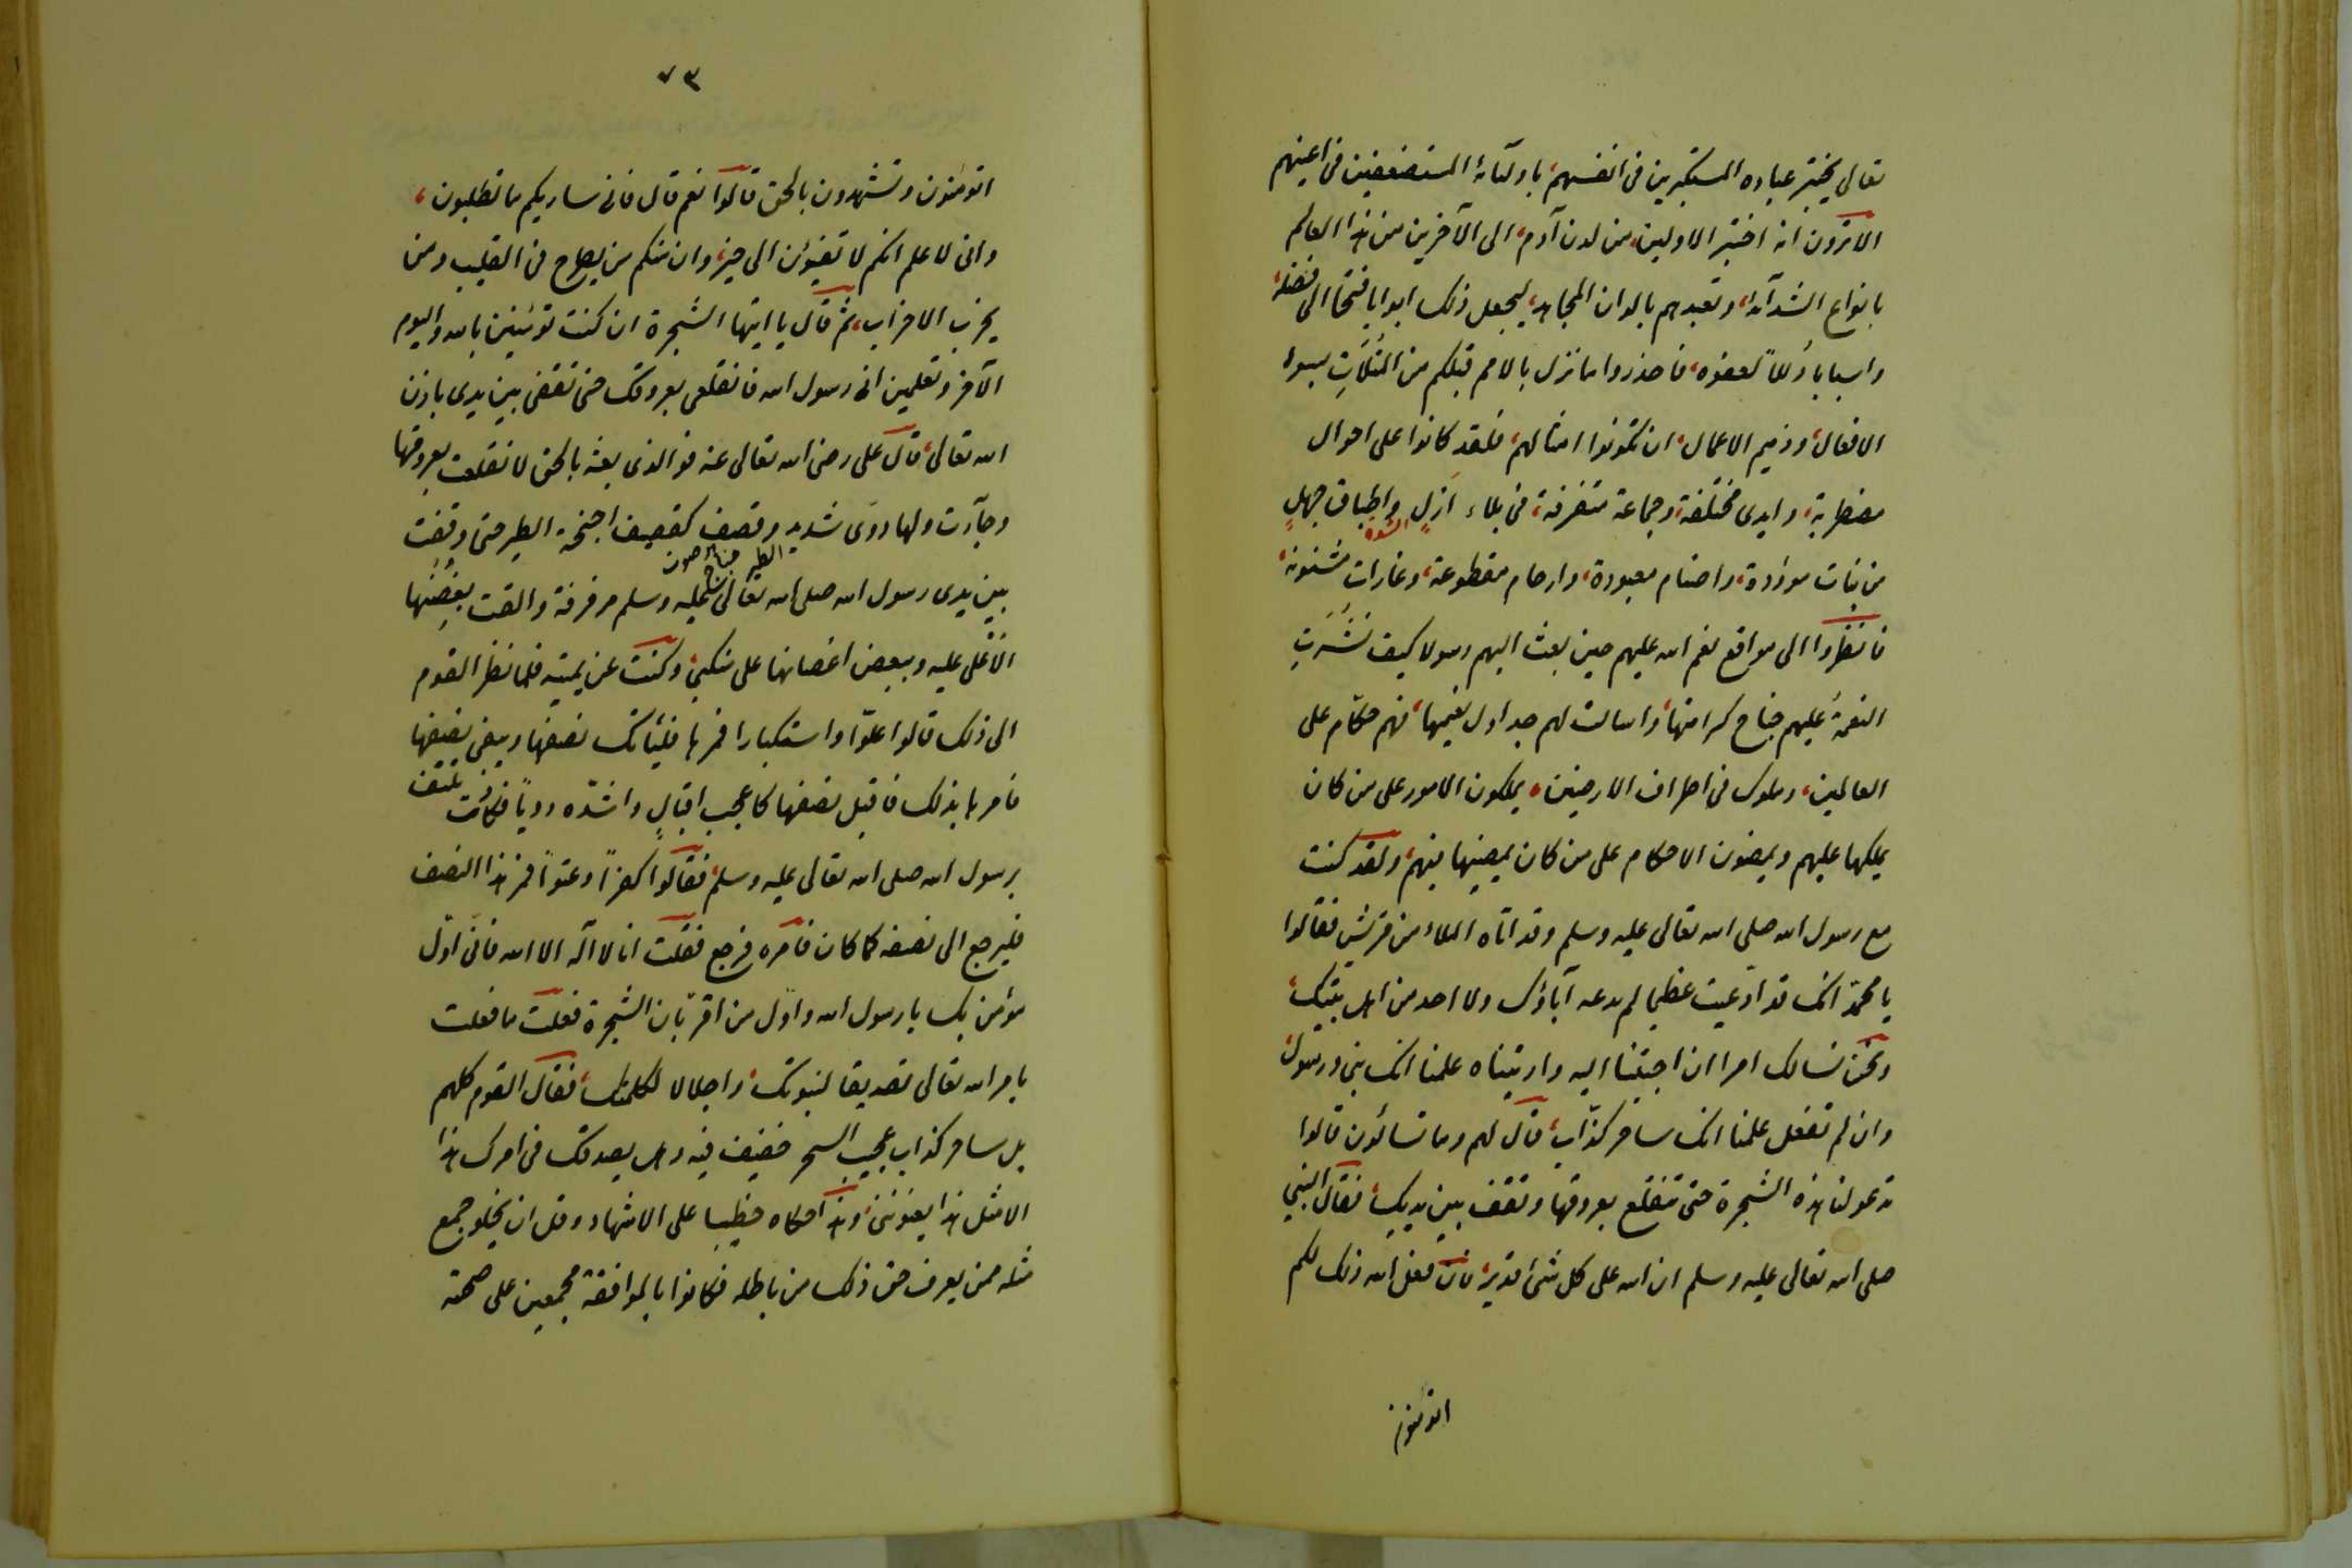 تعالى يختبر عباده المستكبرين فى انفسهم، باوليآئه المستضعفين فى اعينهم
الا ترون انه اختبر الاولين، من لدن آدم، الى الآخرين من هذا العالم
بانواع الشدآئد، وتعبدهم بالوان المجاهد، ليجعل ذلك ابوابا فتحا الى فضله،
واسبابا ذللاً لعفوه، فاحذروا ما نزل بالامم قبلكم من المثلاتِ بسوء
الافعال، وذميم الاعمال، ان تكونوا امثالهم، فلقد كانوا على احوال
مضطربة، وايدى مختلفة، وجماعة متفرقة، فى بلاء ازلٍ واطباق جهلٍ
الشدة
من بنات موؤدة، واصنام معبودة، وارحام مقطوعة، وغارات مشنونة،
فانظروا الى مواقع نعم الله عليهم حين بعث اليهم رسولا كيف نَشَرَتِ
النعمةُ عليهم جناح كرامتها، واسالت لهم جداول نعيمها، فهم حكّام على
العالمين، وملوك فى اطراف الارضين، يملكون الامور على من كان
يملكها عليهم ويمضون الاحكام على من كان يمضيها فيهم، ولقد كنت
مع رسول الله صلى الله تعالى عليه وسلم وقد اتاه الملاء من قريش فقالوا
يا محمد انك قد ادعيت عظيما لم يدعه آباؤك ولا احد من اهل بيتك،
ونحن نسالك امرا ان اجبتنا اليه واريتناه علمنا انك نبى ورسول،
وان لم تفعل علمنا انك ساحر كذّاب، قال لهم وما تسألون قالوا
تدعو لنا هذه الشجرة حتى تنقلع بعروقها وتقف بين يديك، فقال النبي
صلى الله تعالى عليه وسلم ان الله على كل شئ قدير، فان فعل الله ذلك لكم
اتؤمنون
٧٣
اتومنون وتشهدون بالحق قالوا نعم قال فانى ساريكم ما تطلبون،
وانى لاعلم انكم لا تفيؤن الى خير، وان منكم من يطرح فى القليب ومن
يحزب الاحزاب، ثم قال يا ايتها الشجرة ان كنت تومنين بالله واليوم
الآخر وتعلمين انى رسول الله فانقلعى بعروقك حتى تقفى بين يدى باذن
الله تعالى، قال على رضى الله تعالى عنه فوالذى بعثه بالحق لانقلعت بعروقها
وجآءت ولها دوى شديد وقصف كقصيف اجنحة الطير حتى وقفت
صوت جناح الطير
بين يدى رسول الله صلى الله تعالى عليه وسلم مرفرفة والقت بغصنها
الاعلى عليه وببعض اغصانها على منكبى، وكنت عن يمينه فلما نظر القوم
الى ذلك قالوا علوّا واستكبارا فمرها فليأتك نصفها ويبقى نصفها
فامرها بذلك فاقبل نصفها كاعجب اقبالٍ واشدّه دوياً فكادت تلتف
برسول الله صلى الله تعالى عليه وسلم، فقالوا كفراً وعتواً فمر هذا النصف
فليرجع الى نصفه كما كان فامره فرجع فقلت انا لا اله الا الله فانى اوّل
مؤمن بك يا رسول الله واوّل من اقرّ بان الشجرة فعلت ما فعلت
بامر الله تعالى تصديقا لنبوتك، واجلالا لكلمتك، فقال القوم كلهم
بل ساحر كذاب عجيب السحر خفيف فيه وهل يصدقك فى امرك هذا
الا مثل هذا يعنوننى، وهذا حكاه خطيبا على الاشهاد وقل ان يخلو جمع
مثله ممن يعرف حق ذلك من باطله فكانوا بالموافقة مجمعين على صحته